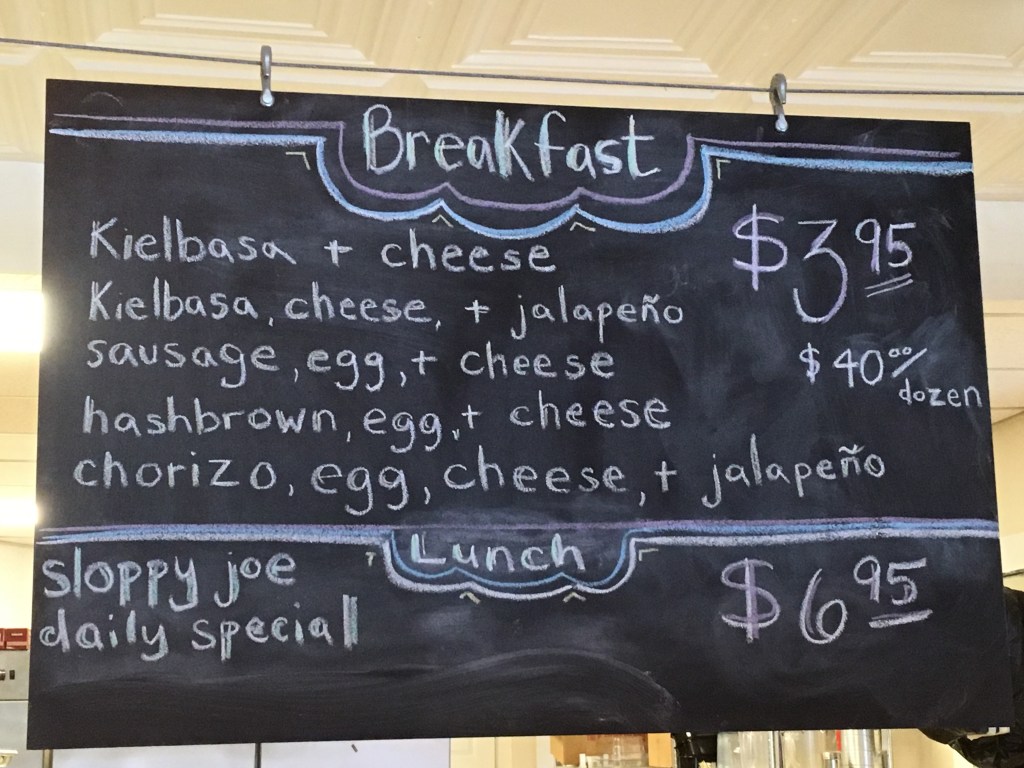 Breakfast
Kielbasa + cheese $3 95
Kielbasa, cheese, + jalapeño
sausage, egg, + cheese $40 00/
dozen
hashbrown, egg, + cheese
chorizo, egg, cheese, + jalapeño
Lunch
sloppy joe $6 95
daily special